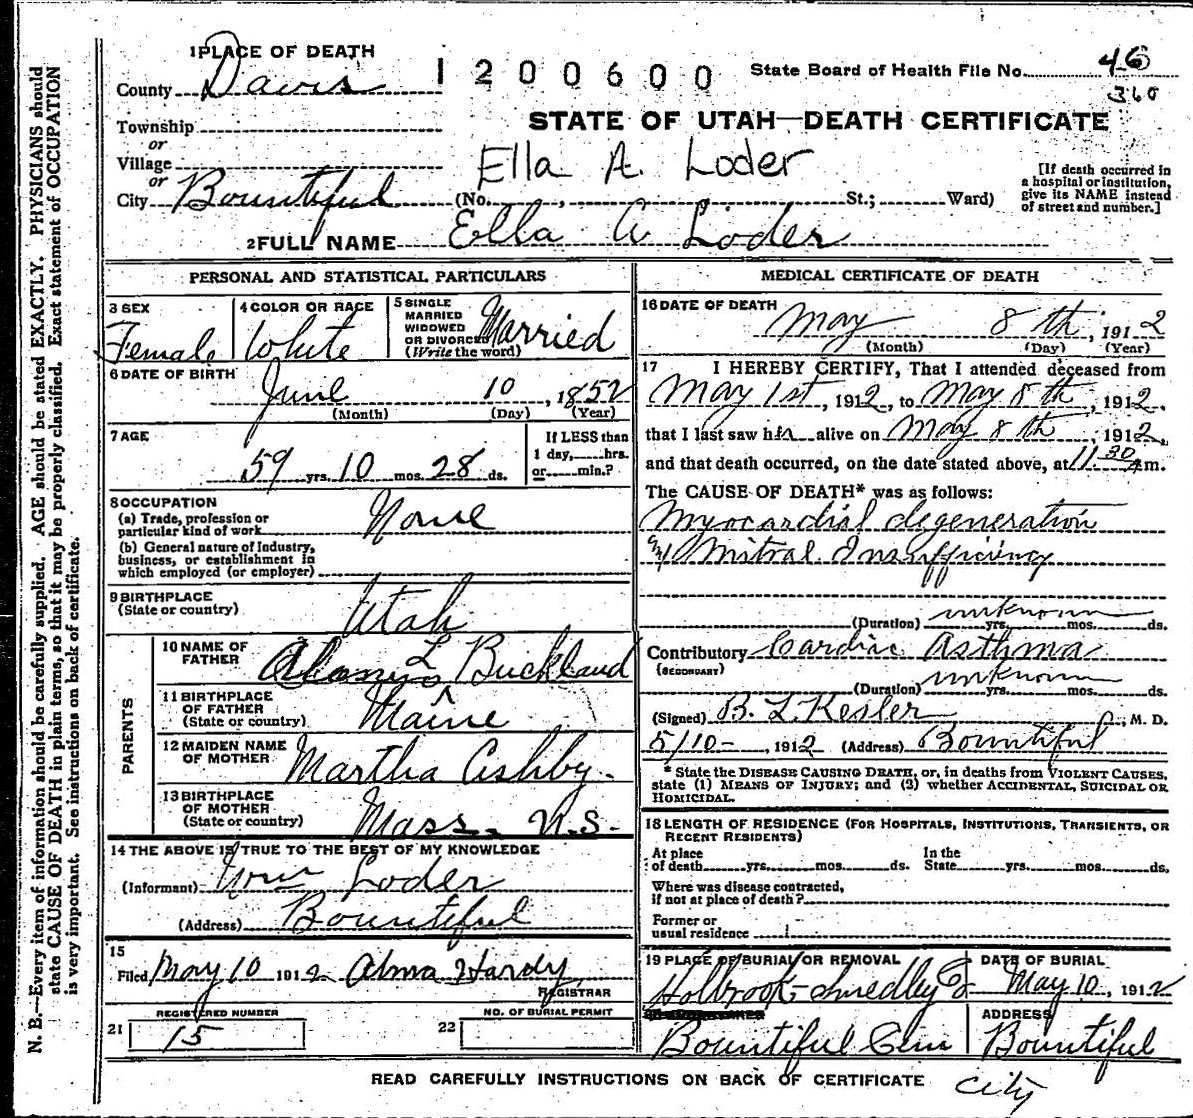 1 PLACE OF DEATH
County Davis
1200600
State Board of Health File No. 46
360
Township
or
Village
or
City Bountiful
STATE OF UTAH—DEATH CERTIFICATE
Ella A. Loder
(No. , St.; Ward)
[If death occurred in
a hospital or institution,
give its NAME instead
of street and number.]
2 FULL NAME Ella A Loder
PERSONAL AND STATISTICAL PARTICULARS
3 SEX
Female
4 COLOR OR RACE
White
5 SINGLE
MARRIED
WIDOWED
OR DIVORCED
(Write the word)
Married
6 DATE OF BIRTH
June 10, 1852
(Month) (Day) (Year)
7 AGE
59 yrs. 10 mos. 28 ds.
If LESS than
1 day, hrs.
or min.?
8 OCCUPATION
(a) Trade, profession or
particular kind of work None
(b) General nature of Industry,
business, or establishment in
which employed (or employer)
9 BIRTHPLACE
(State or country) Utah
PARENTS
10 NAME OF
FATHER
L Buckland
11 BIRTHPLACE
OF FATHER
(State or country)
Maine
12 MAIDEN NAME
OF MOTHER
Martha Ashby.
13 BIRTHPLACE
OF MOTHER
(State or country)
Mass. U.S.
14 THE ABOVE IS TRUE TO THE BEST OF MY KNOWLEDGE
(Informant) Loder
(Address) Bountiful
15
Filed May 10 1912 Alma Hardy
REGISTRAR
21 REGISTERED NUMBER
15
22 NO. OF BURIAL PERMIT
MEDICAL CERTIFICATE OF DEATH
16 DATE OF DEATH
May 8th, 1912
(Month) (Day) (Year)
17 I HEREBY CERTIFY, That I attended deceased from
May 1st, 1912, to May 8th, 1912.
that I last saw h alive on May 8th, 1912,
and that death occurred, on the date stated above, at 11.30 m.
The CAUSE OF DEATH* was as follows:
Myocardial degeneration
Mitral Insufficiency
(Duration) unknown yrs. mos. ds.
Contributory Cardiac Asthma
(SECONDARY)
(Duration) unknown yrs. mos. ds.
(Signed) B. L. Kesler, M. D.
5/10-, 1912 (Address) Bountiful
* State the DISEASE CAUSING DEATH, or, in deaths from VIOLENT CAUSES,
state (1) MEANS OF INJURY; and (2) whether ACCIDENTAL, SUICIDAL OR
HOMICIDAL.
18 LENGTH OF RESIDENCE (FOR HOSPITALS, INSTITUTIONS, TRANSIENTS, OR
RECENT RESIDENTS)
At place
of death yrs. mos. ds.
In the
State yrs. mos. ds.
Where was disease contracted,
if not at place of death?
Former or
usual residence
19 PLACE OF BURIAL OR REMOVAL
Holbrook-Smedley Co
DATE OF BURIAL
May 10, 1912
Bountiful Cem
ADDRESS
Bountiful
City
READ CAREFULLY INSTRUCTIONS ON BACK OF CERTIFICATE
N. B.—Every item of information should be carefully supplied. AGE should be stated EXACTLY. PHYSICIANS should
state CAUSE OF DEATH in plain terms, so that it may be properly classified. Exact statement of OCCUPATION
is very important. See instructions on back of certificate.